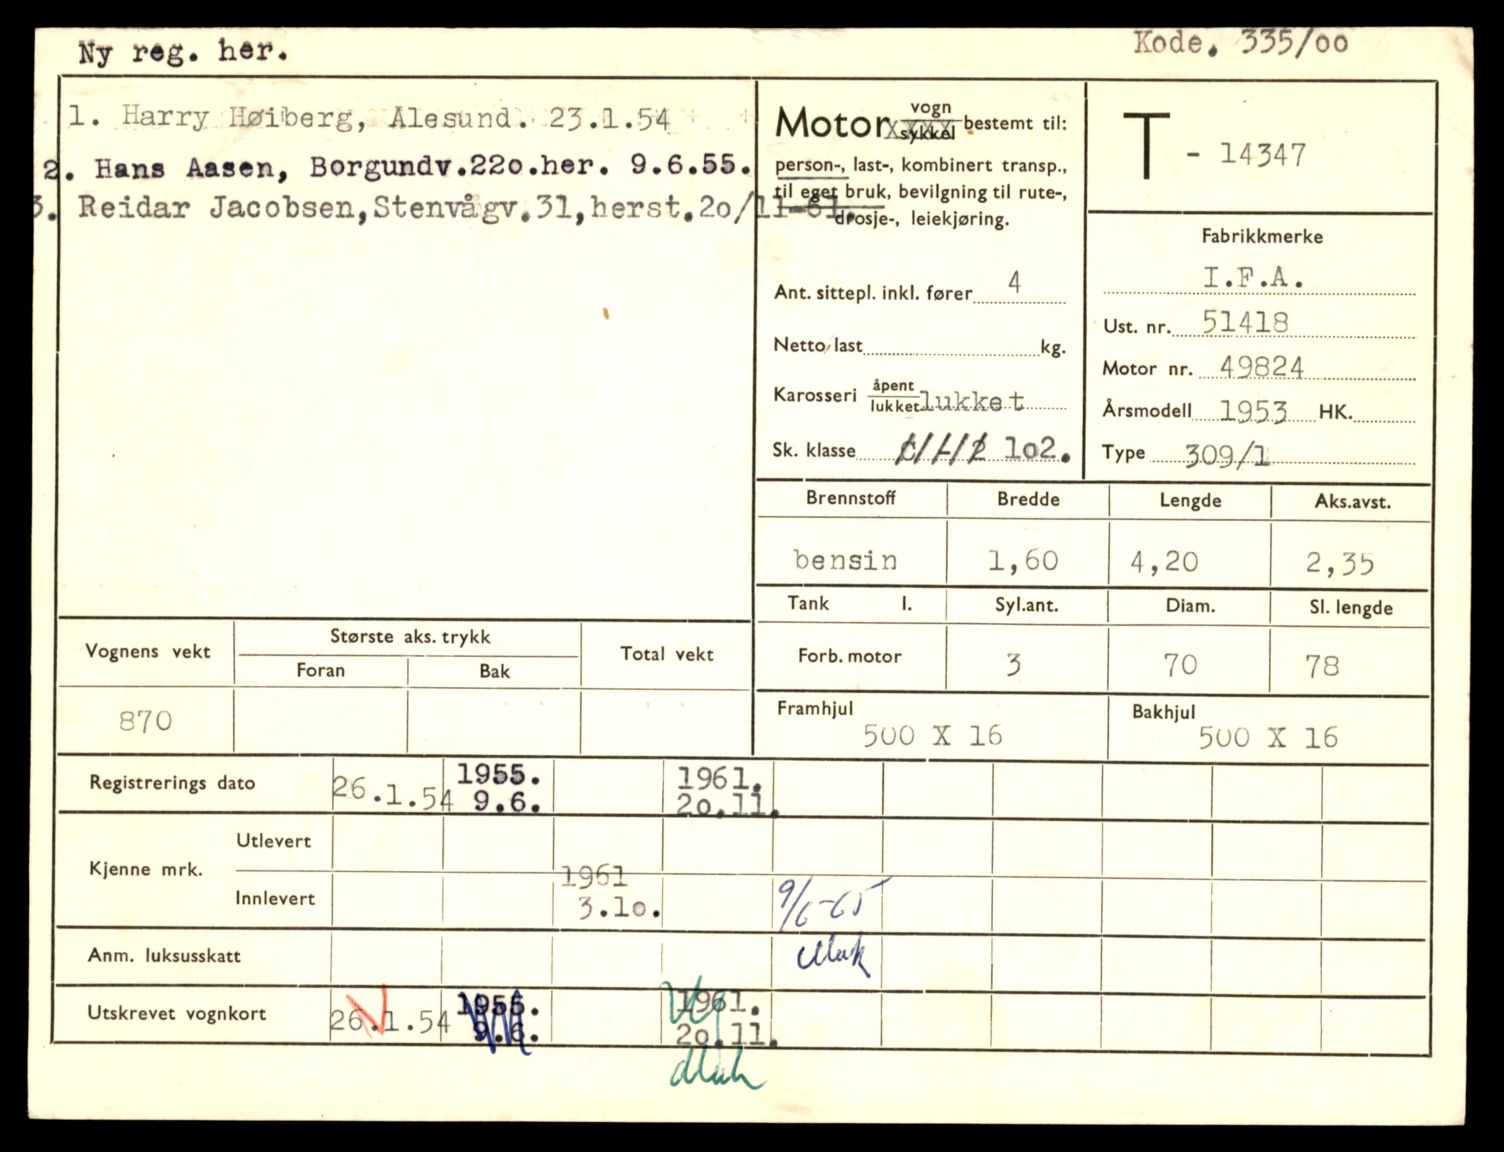 Ny reg. her.
Kode. 335/oo
1. Harry Høiberg, Alesund. 23.1.54
2. Hans Aasen, Borgundv.22o.her. 9.6.55.
3. Reidar Jacobsen,Stenvågv.31,herst.2o/11-61.
Motor vogn sykkel bestemt til:
person-, last-, kombinert transp.,
til eget bruk, bevilgning til rute-,
drosje-, leiekjøring.
T - 14347
Fabrikkmerke
I.F.A.
Ant. sittepl. inkl. fører 4
Ust. nr. 51418
Netto last kg.
Motor nr. 49824
Karosseri åpent lukket lukket
Årsmodell 1953 HK.
Sk. klasse 1o2.
Type 309/1
Brennstoff Bredde Lengde Aks.avst.
bensin 1,60 4,20 2,35
Tank l. Syl.ant. Diam. Sl. lengde
Forb. motor 3 70 78
Vognens vekt Største aks. trykk Total vekt
Foran Bak
870
Framhjul Bakhjul
500 X 16 500 X 16
Registrerings dato 26.1.54 1955. 9.6. 1961. 2o.11.
Kjenne mrk. Utlevert
Innlevert 1961 3.1o. 9/6-65
Anm. luksusskatt
Utskrevet vognkort 26.1.54 1955. 9.6. 1961. 2o.11.